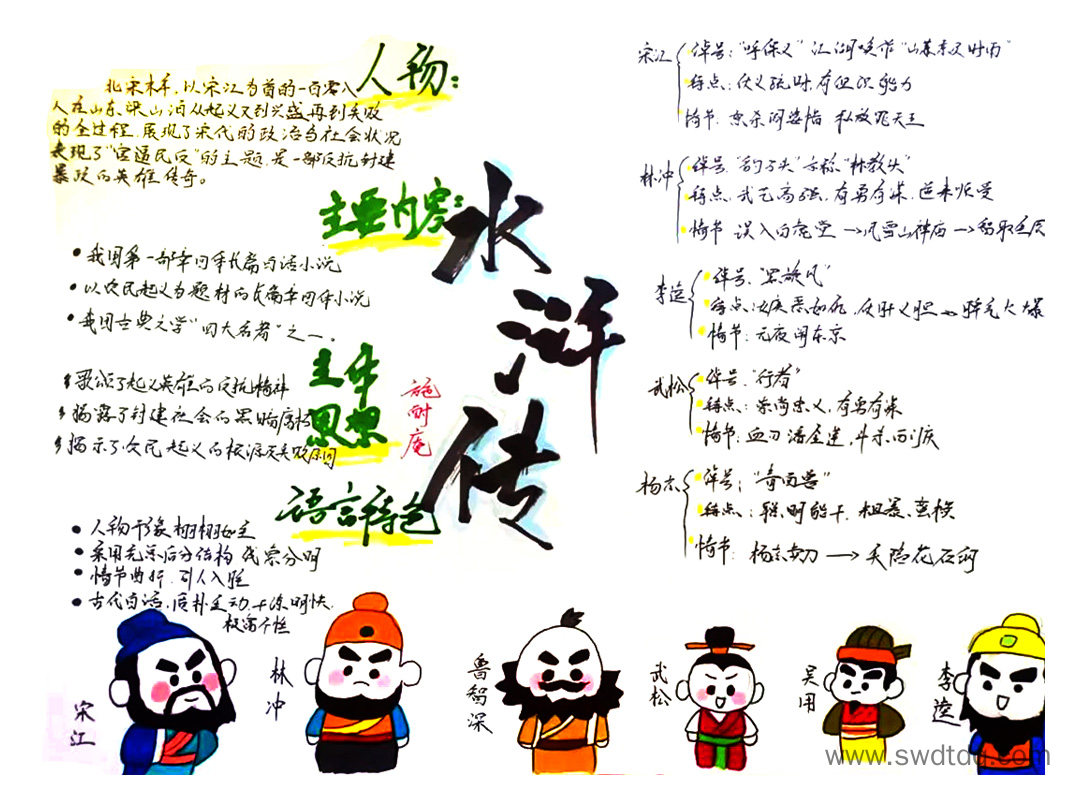 人物：
北宋末年，以宋江为首的一百零八
人在山东梁山泊从起义到兴盛再到失败
的全过程，展现了宋代的政治与社会状况
表现了“官逼民反”的主题，是一部反抗封建
暴政的英雄传奇。
主要内容：
我国第一部章回体长篇白话小说
以农民起义为题材的长篇章回体小说
我国古典文学“四大名著”之一。
主体
思想
歌颂了起义英雄的反抗精神
揭露了封建社会的黑暗腐朽
揭示了农民起义的根源及失败原因
语言特色
人物形象栩栩如生
采用先总后分结构
分明
情节曲折，引人入胜
古代白话，质朴生动，
明快，
极富个性
水浒传
施耐庵
宋江
绰号：“呼保义” 江湖唤作“山东及时雨”
特点：仗义疏财，有组织能力
情节：怒杀阎婆惜 私放晁天王
林冲
绰号：“豹子头” 亦称“林教头”
特点：武艺高强，有勇有谋，逆来顺受
情节 误入白虎堂 → 风雪山神庙 →
李逵
绰号：“黑旋风”
特点：
疾恶如仇，
情节：元夜闹东京
武松
绰号：“行者”
特点：崇尚忠义，有勇有谋
情节：血刃潘金莲，斗杀西门庆
杨志
绰号：“青面兽”
特点：聪明能干，粗暴，蛮横
情节：杨志卖刀 → 失陷花石纲
宋江
林冲
鲁智深
武松
吴用
李逵
www.swdtdq.com